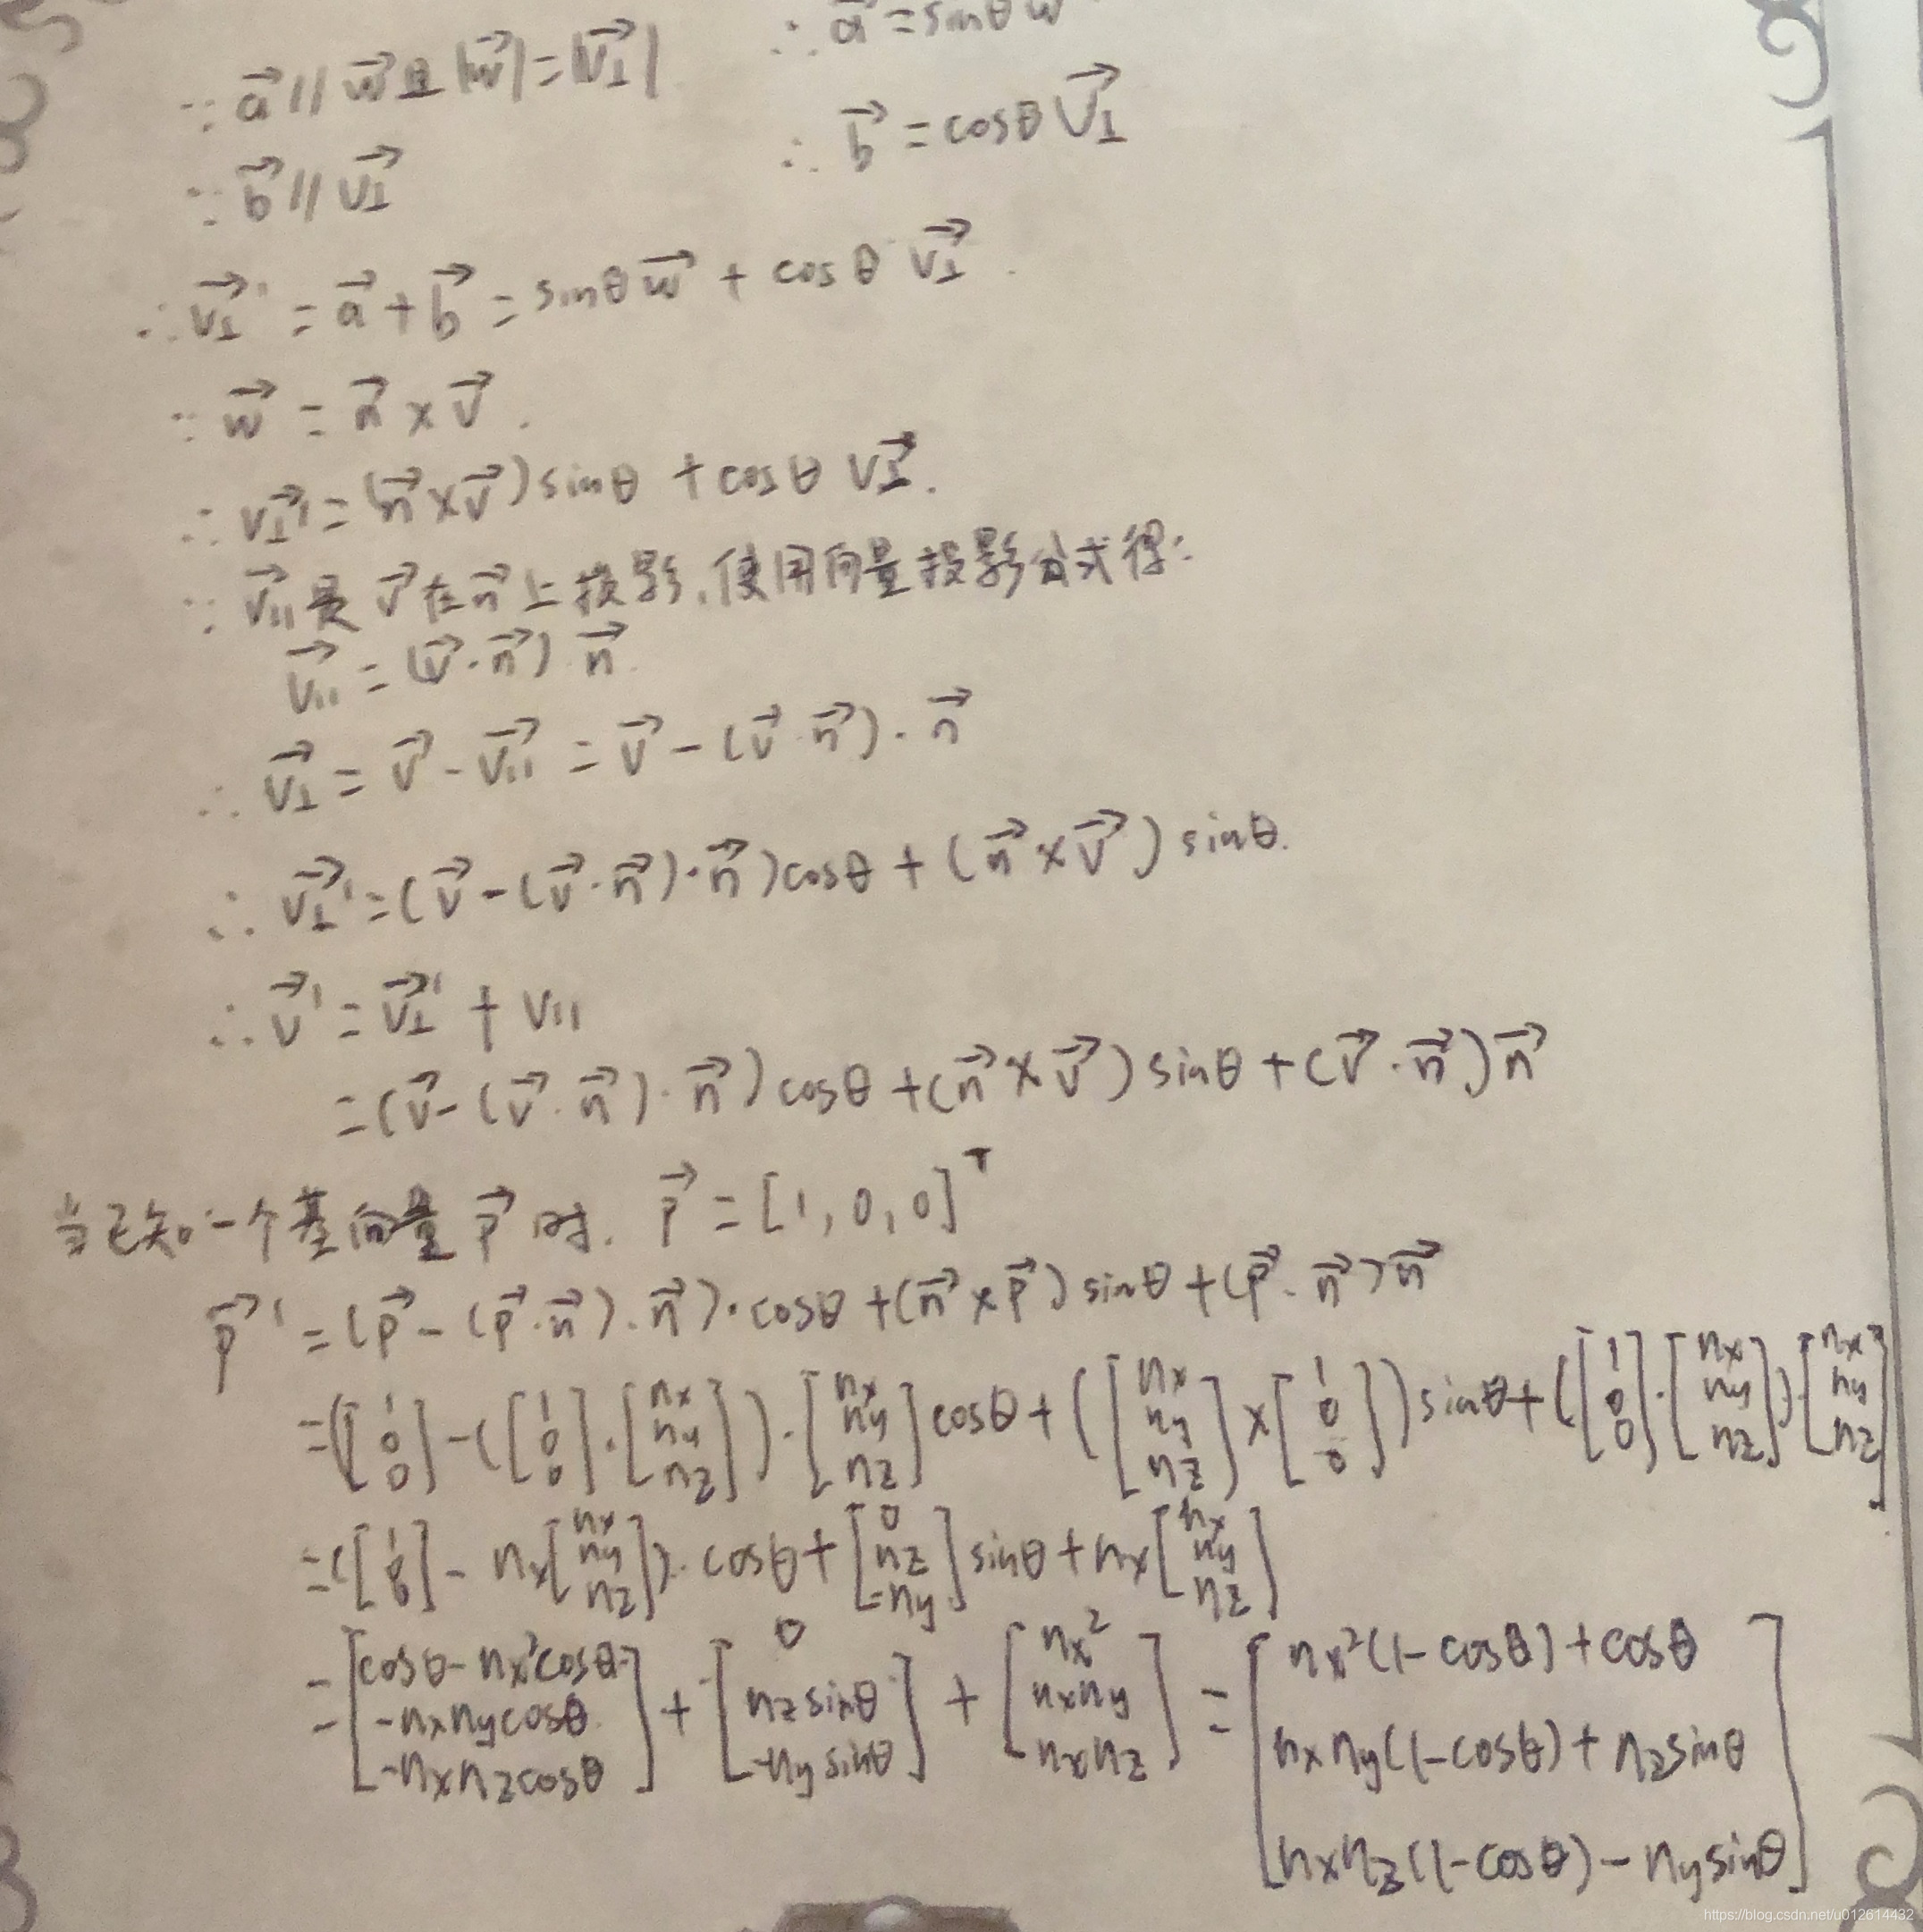 ∵ a⃗ // w⃗ 且 |w⃗| = |v⊥⃗| ∴ a⃗ = sinθ w⃗
∵ b⃗ // v⊥⃗ ∴ b⃗ = cosθ v⊥⃗
∴ v⊥⃗' = a⃗ + b⃗ = sinθ w⃗ + cosθ v⊥⃗.
∵ w⃗ = n⃗ × v⃗.
∴ v⊥⃗' = (n⃗ × v⃗) sinθ + cosθ v⊥⃗.
∵ v∥⃗ 是 v⃗ 在 n⃗ 上投影, 使用向量投影公式得:
v∥⃗ = (v⃗·n⃗) n⃗.
∴ v⊥⃗ = v⃗ - v∥⃗ = v⃗ - (v⃗·n⃗)·n⃗
∴ v⊥⃗' = (v⃗ - (v⃗·n⃗)·n⃗) cosθ + (n⃗ × v⃗) sinθ.
∴ v⃗' = v⊥⃗' + v∥
= (v⃗ - (v⃗·n⃗)·n⃗) cosθ + (n⃗ × v⃗) sinθ + (v⃗·n⃗) n⃗
当已知一个基向量 p⃗ 时. p⃗ = [1, 0, 0]ᵀ
p⃗' = (p⃗ - (p⃗·n⃗)·n⃗)·cosθ + (n⃗ × p⃗) sinθ + (p⃗·n⃗) n⃗
= ([1 0 0] - ([1 0 0]·[nx ny nz])·[nx ny nz] cosθ + ([nx ny nz] × [1 0 0]) sinθ + ([1 0 0]·[nx ny nz])·[nx ny nz]
= ([1 0 0] - nx[nx ny nz])·cosθ + [0 nz -ny] sinθ + nx[nx ny nz]
= [cosθ - nx²cosθ -nxnycosθ -nxnzcosθ] + [0 nzsinθ -nysinθ] + [nx² nxny nxnz] = [nx²(1-cosθ)+cosθ nxny(1-cosθ)+nzsinθ nxnz(1-cosθ)-nysinθ]
https://blog.csdn.net/u012614432